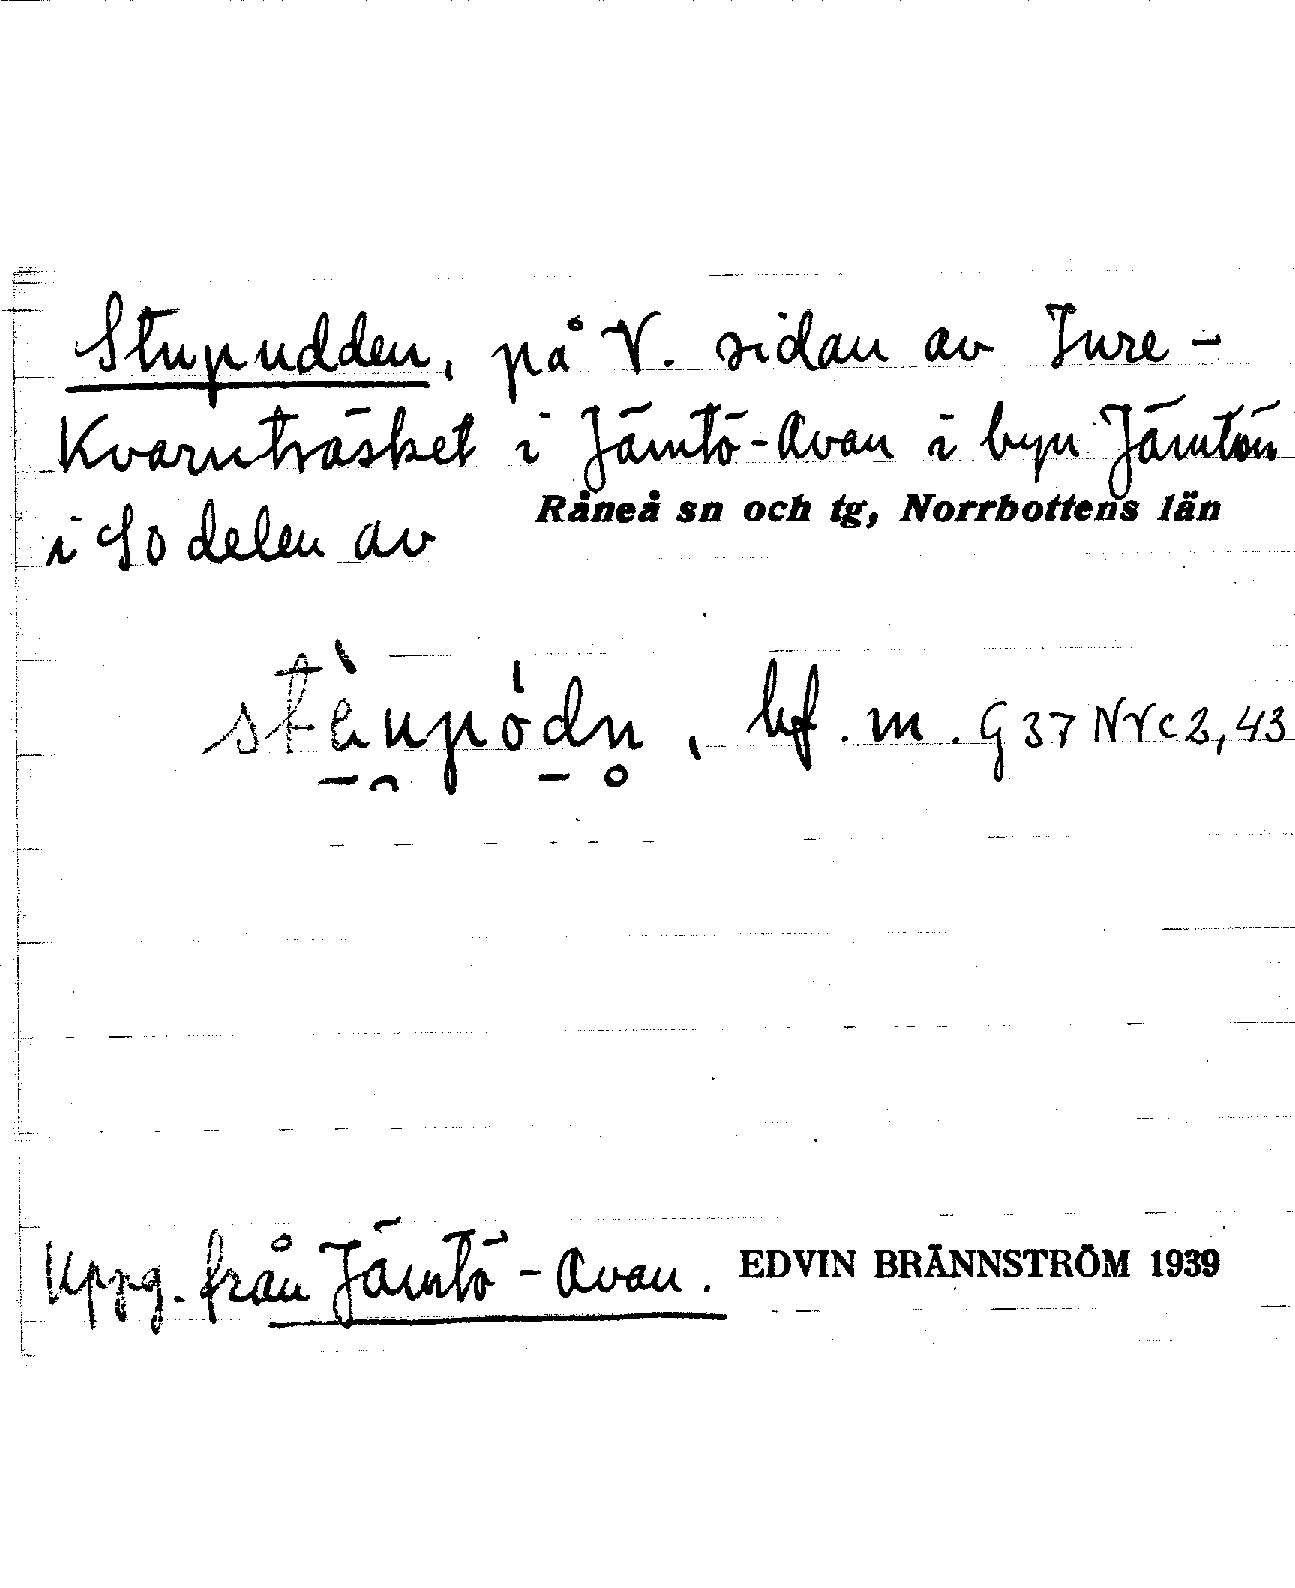 Stupudden, på V. sidan av Inre -
Kvarnträsket i Jämtö-Avan i byn Jämtön
i So delen av Råneå sn och tg, Norrbottens län
stè̱u̯pö̱̍dn̥, bf. m. G 37 NVc2,43
Uppg. från Jämtö - Avan. EDVIN BRÄNNSTRÖM 1939